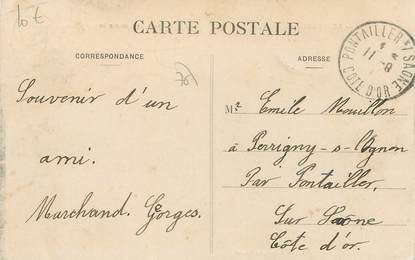 10 €
CARTE POSTALE
CORRESPONDANCE
ADRESSE
PONTAILLER S/ SAONE
11 - 8
COTE D'OR
70
Souvenir d'un
ami.
Marchand. Georges.
Mr Emile Mouillon
à Perrigny-s-Ognon
Par Pontailler,
Sur Saône
Côte d'or.